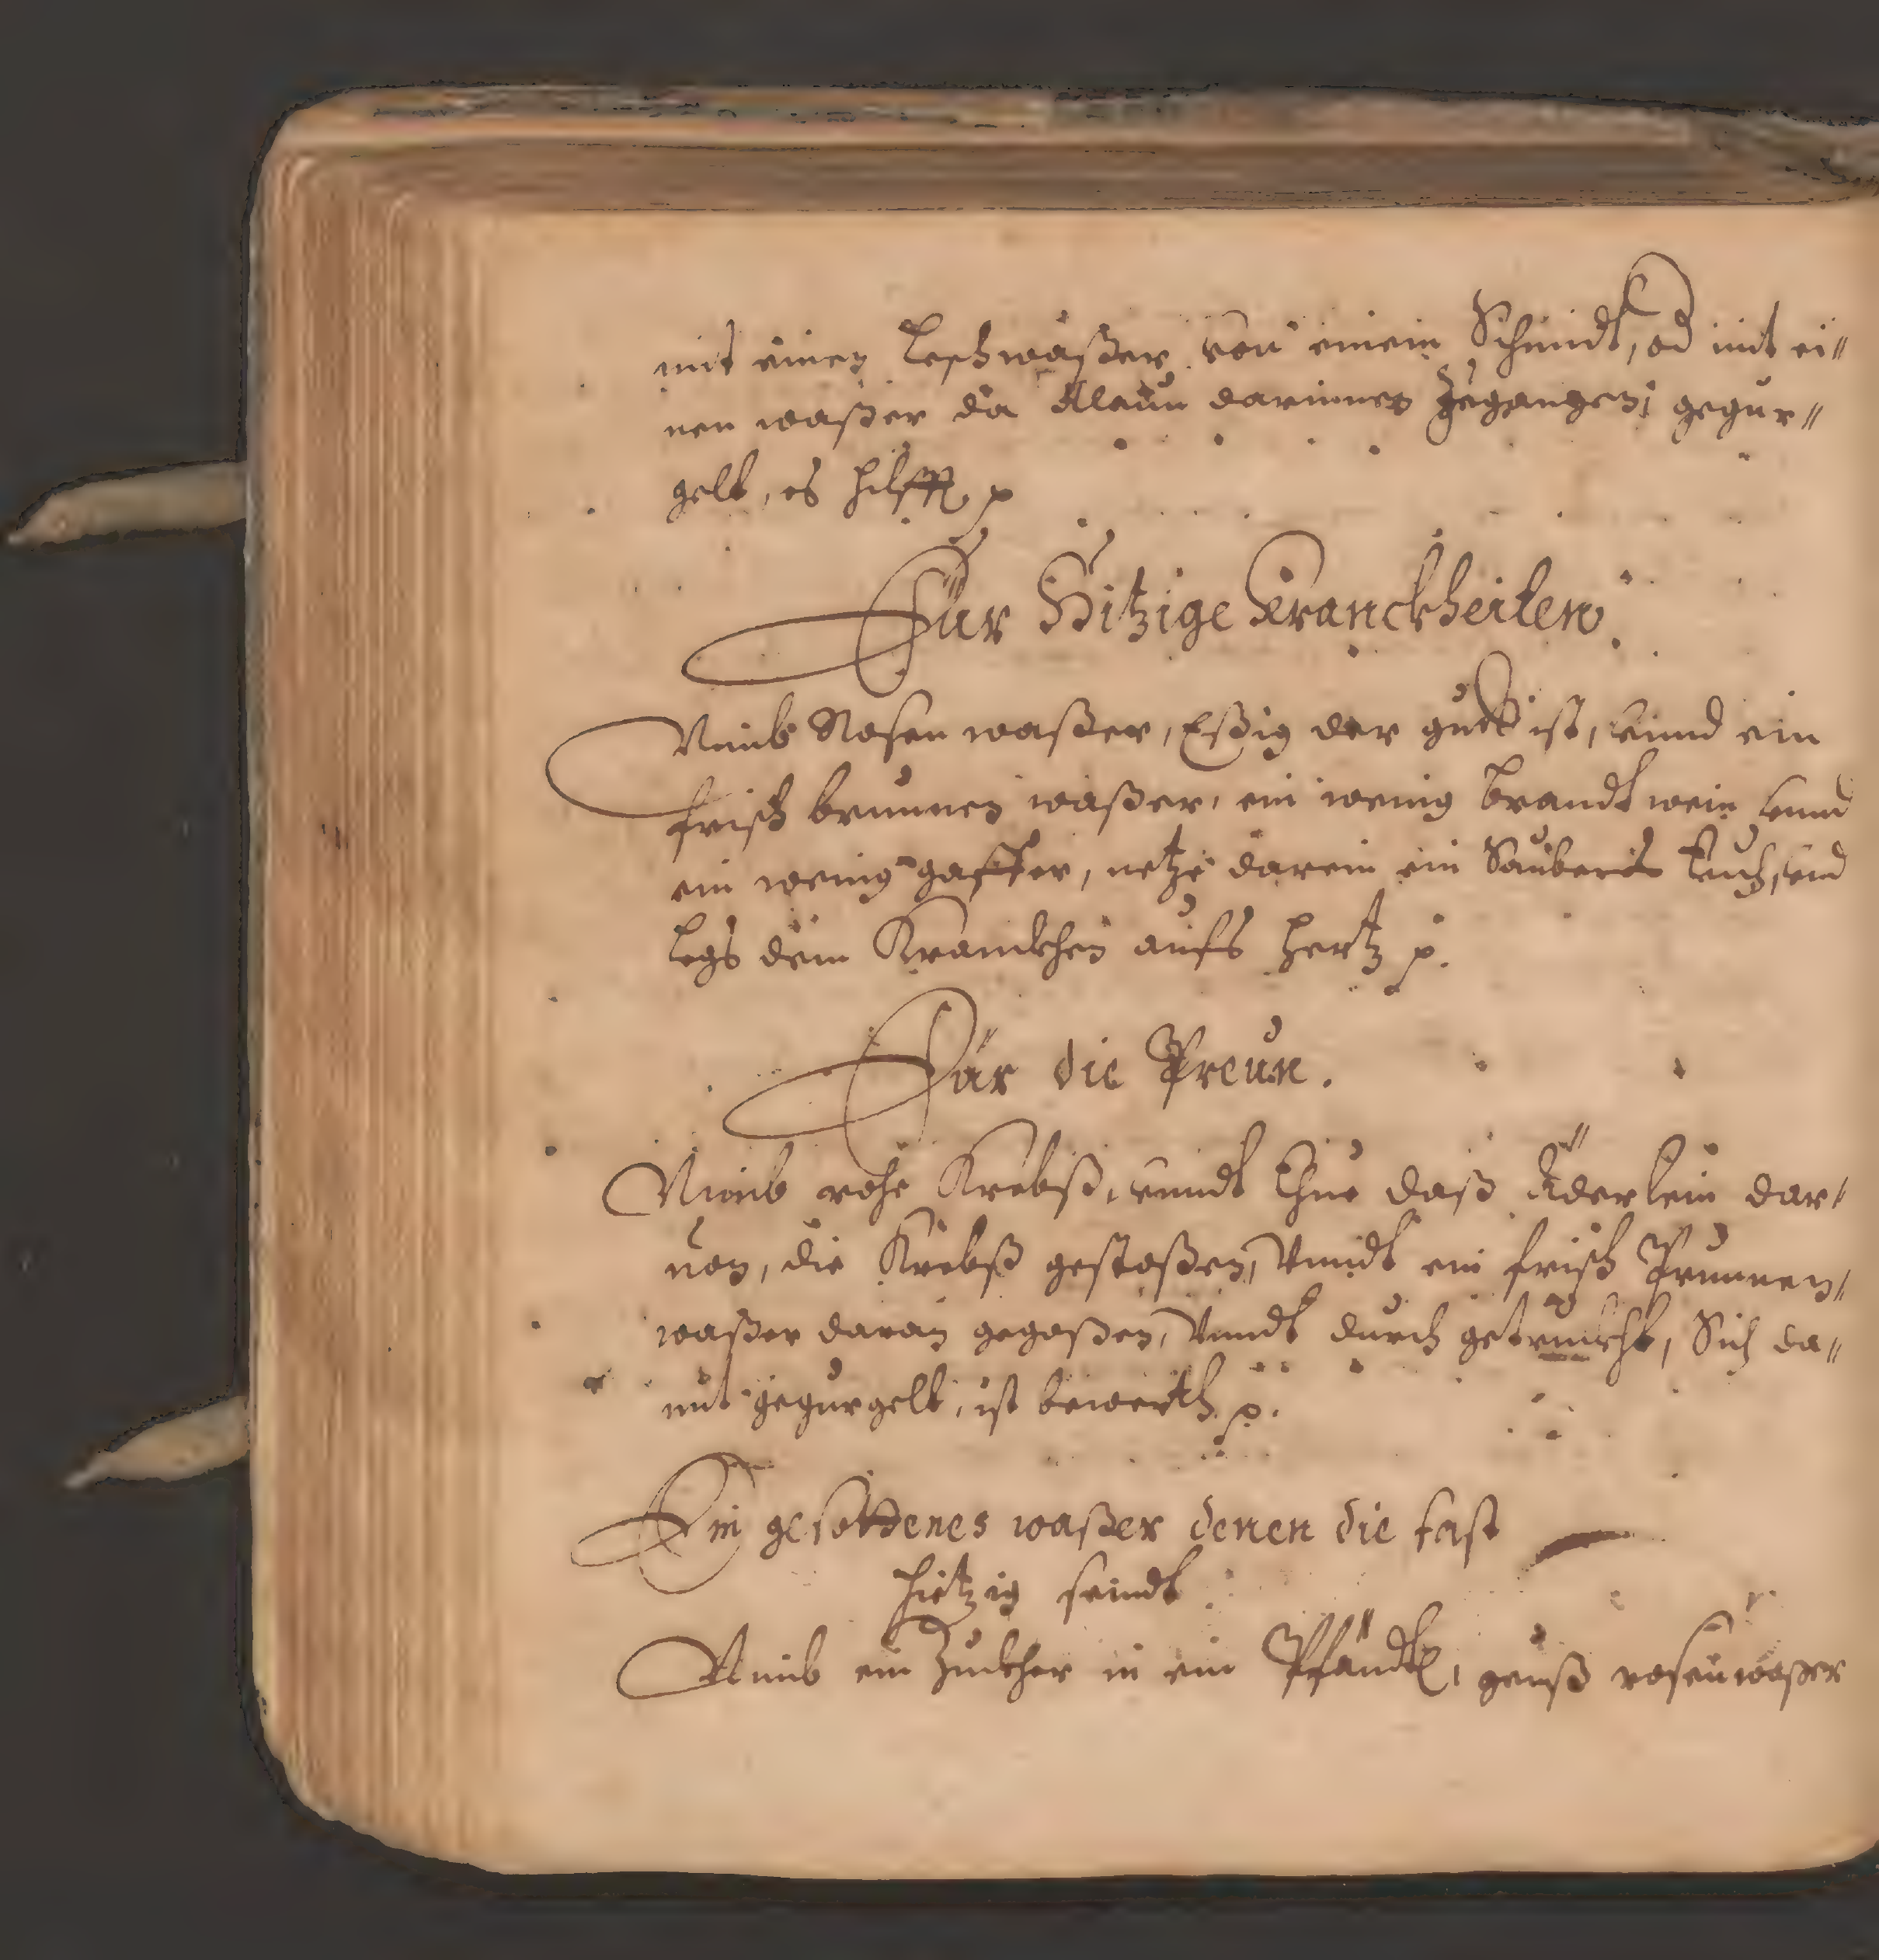 mit einen Leschwaßer von einem Schmidt, od mit ei„
nen waßer da Alaun darinnen zugangen, gegur„
gelt, es hilfft p
Für Hitzige Kranckheiten.
Nimb Rosen waßer, Eßig der gutt ist, vnnd ein
frisch brunnen waßer, ein wenig brandtwein vnnd
ein wenig gaffer, netze darein ein Sauberes tuch, vnd
legs dem Krankhen aufs hertz p.
Für die Preun.
Nimb rohe Krebß, vnndt thue daß Äderlein dar„
uon, die Krebß gestoßen, Vnndt ein frisch Prunnen„
waßer daran gegoßen, Vnndt durch getrukht, Sich da„
mit gegurgelt, ist bewerth p.
Ein gesottenes waßer denen die fast
hietzig seindt
Nimb ein Zukher in ein Pfändtl, geuß rosenwaßer